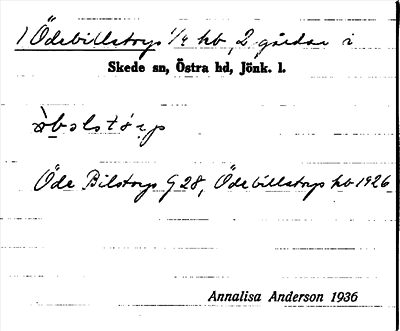 1 Ödebillstorp 1/4 hb, 2 gårdar i
Skede sn, Östra hd, Jönk. l.
Öde Bilstorp G 28, Ödebillstorp hb 1926
Annalisa Anderson 1936